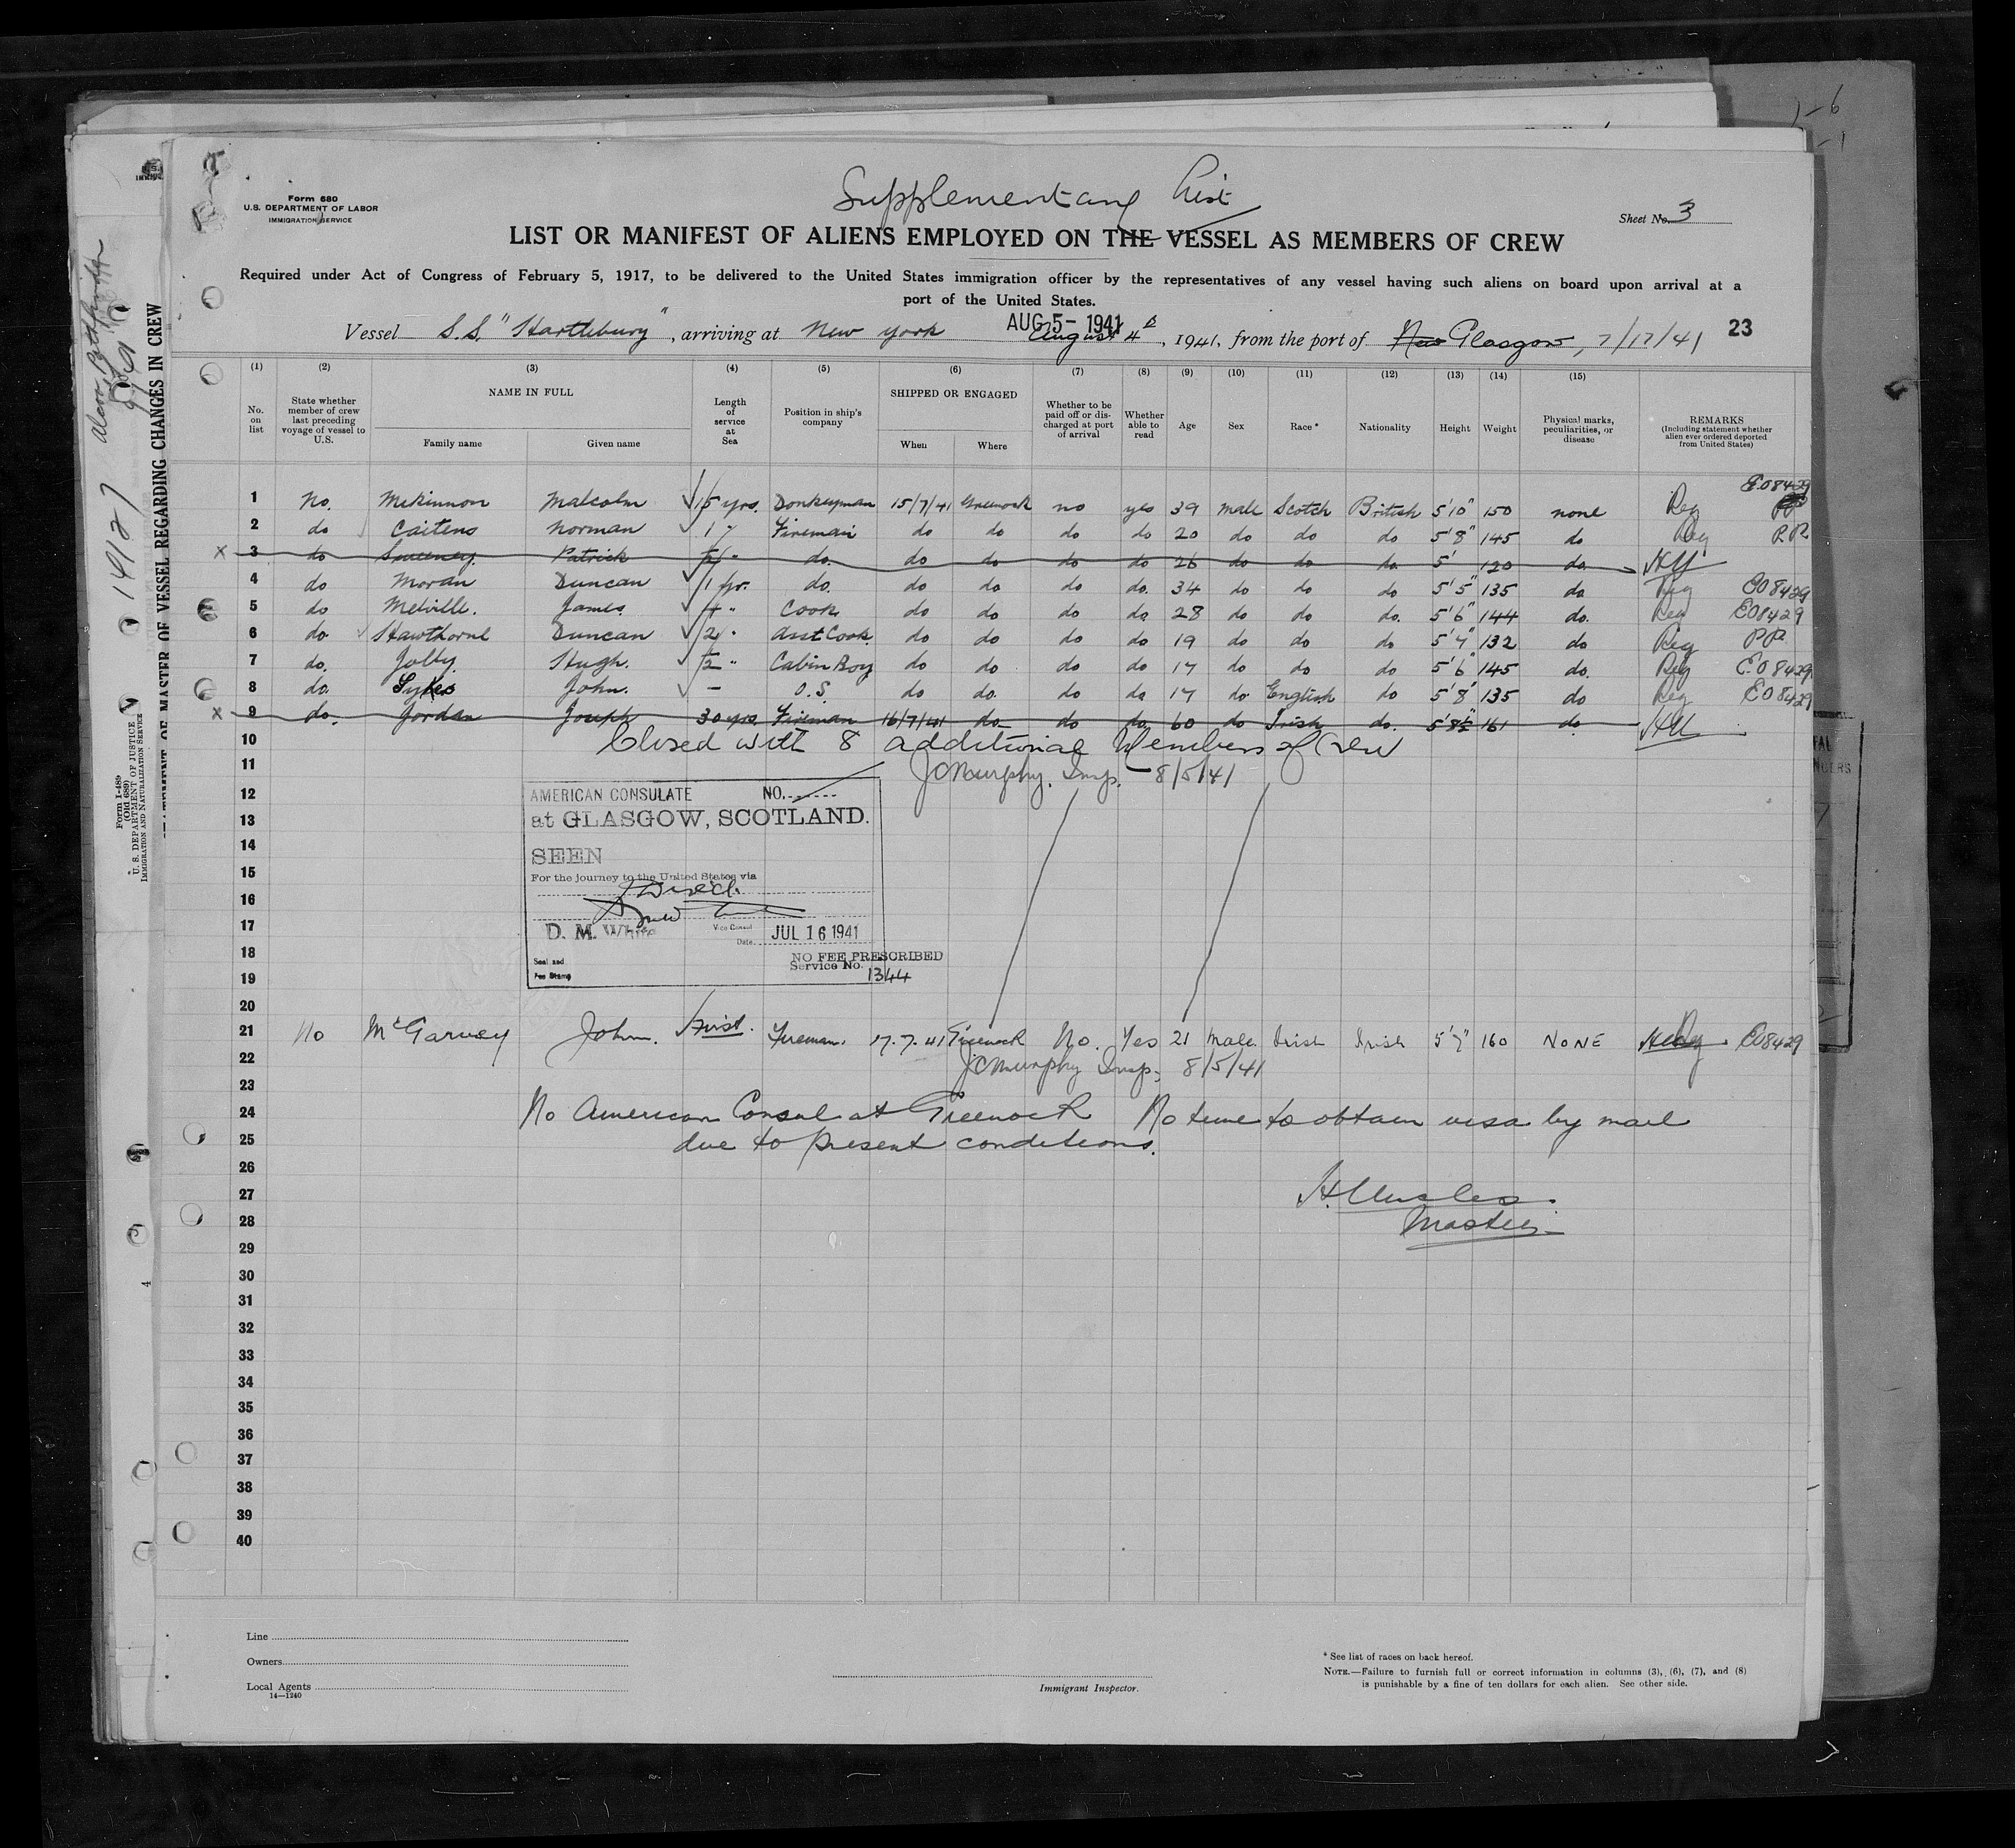 Supplementary List
Form 680
U.S. DEPARTMENT OF LABOR
IMMIGRATION SERVICE
Sheet No. 3
LIST OR MANIFEST OF ALIENS EMPLOYED ON THE VESSEL AS MEMBERS OF CREW
Required under Act of Congress of February 5, 1917, to be delivered to the United States immigration officer by the representatives of any vessel having such aliens on board upon arrival at a
port of the United States.
AUG 5 - 1941
Vessel S.S. "Hartlebury", arriving at New York August 4th, 1941, from the port of New Glasgow, 7/17/41 23
(1) (2) (3) (4) (5) (6) (7) (8) (9) (10) (11) (12) (13) (14) (15)
No. on list
State whether member of crew last preceding voyage of vessel to U.S.
NAME IN FULL
Family name Given name
Length of service at Sea
Position in ship's company
SHIPPED OR ENGAGED
When Where
Whether to be paid off or discharged at port of arrival
Whether able to read
Age Sex Race * Nationality Height Weight
Physical marks, peculiarities, or disease
REMARKS
(Including statement whether alien ever ordered deported from United States)
1 No. McKinnon Malcolm 15 yrs. Donkeyman 15/7/41 Greenock no yes 39 male Scotch British 5'10" 150 none Reg E08429
2 do Caitens Norman 1 " Fireman do do do do 20 do do do 5'8" 145 do Reg P.R.
X 3 do Sweeney Patrick do. do do do do 26 do do do. 5' 120 do.
4 do Moran Duncan 1 yr. do. do do do do. 34 do do do 5'5" 135 do Reg E08429
5 do Melville. James. " Cook do do do do 28 do do do. 5'6" 144 do. Reg E08429
6 do. Hawthorne Duncan 2 " Asst Cook do do do do 19 do do do 5'7" 132 do Reg P.R.
7 do. Jolly. Hugh. 1/2 " Cabin Boy do do do do 17 do do do 5'6" 145 do. Reg E08429
8 do. Sykes John. — O.S. do do. do do 17 do English do 5'8" 135 do Reg E08429
X 9 do. Jordan Joseph 30 yrs Fireman 16/7/41 do do do. 60 do Irish do. 5'8½ 161 do
10 Closed with 8 additional Members of Crew
11 JC Murphy. Insp. — 8/5/41
12
13
14
15
16
17
18
19
20
AMERICAN CONSULATE NO.
at GLASGOW, SCOTLAND.
SEEN
For the journey to the United States via
Direct.
D. M. White
Vice Consul
Date. JUL 16 1941
Seal and
Fee Stamp
NO FEE PRESCRIBED
Service No. 1344
21 No McGarvey John. First. Fireman. 17.7.41 Greenock No. Yes 21 Male Irish Irish 5'7" 160 NONE Reg E08429
22 JC Murphy Insp. 8/5/41
23
24 No American Consul at Greenock No time to obtain visa by mail
25 due to present conditions.
26
27
28 Master
29
30
31
32
33
34
35
36
37
38
39
40
Line
Owners
Local Agents
14—1240
Immigrant Inspector.
* See list of races on back hereof.
NOTE.—Failure to furnish full or correct information in columns (3), (6), (7), and (8)
is punishable by a fine of ten dollars for each alien. See other side.
STATEMENT OF MASTER OF VESSEL REGARDING CHANGES IN CREW
Form I-489
(Old 689)
U. S. DEPARTMENT OF JUSTICE
IMMIGRATION AND NATURALIZATION SERVICE
4